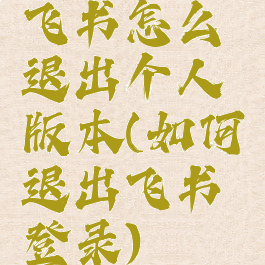 飞书怎么
退出个人
版本(如何
退出飞书
登录)